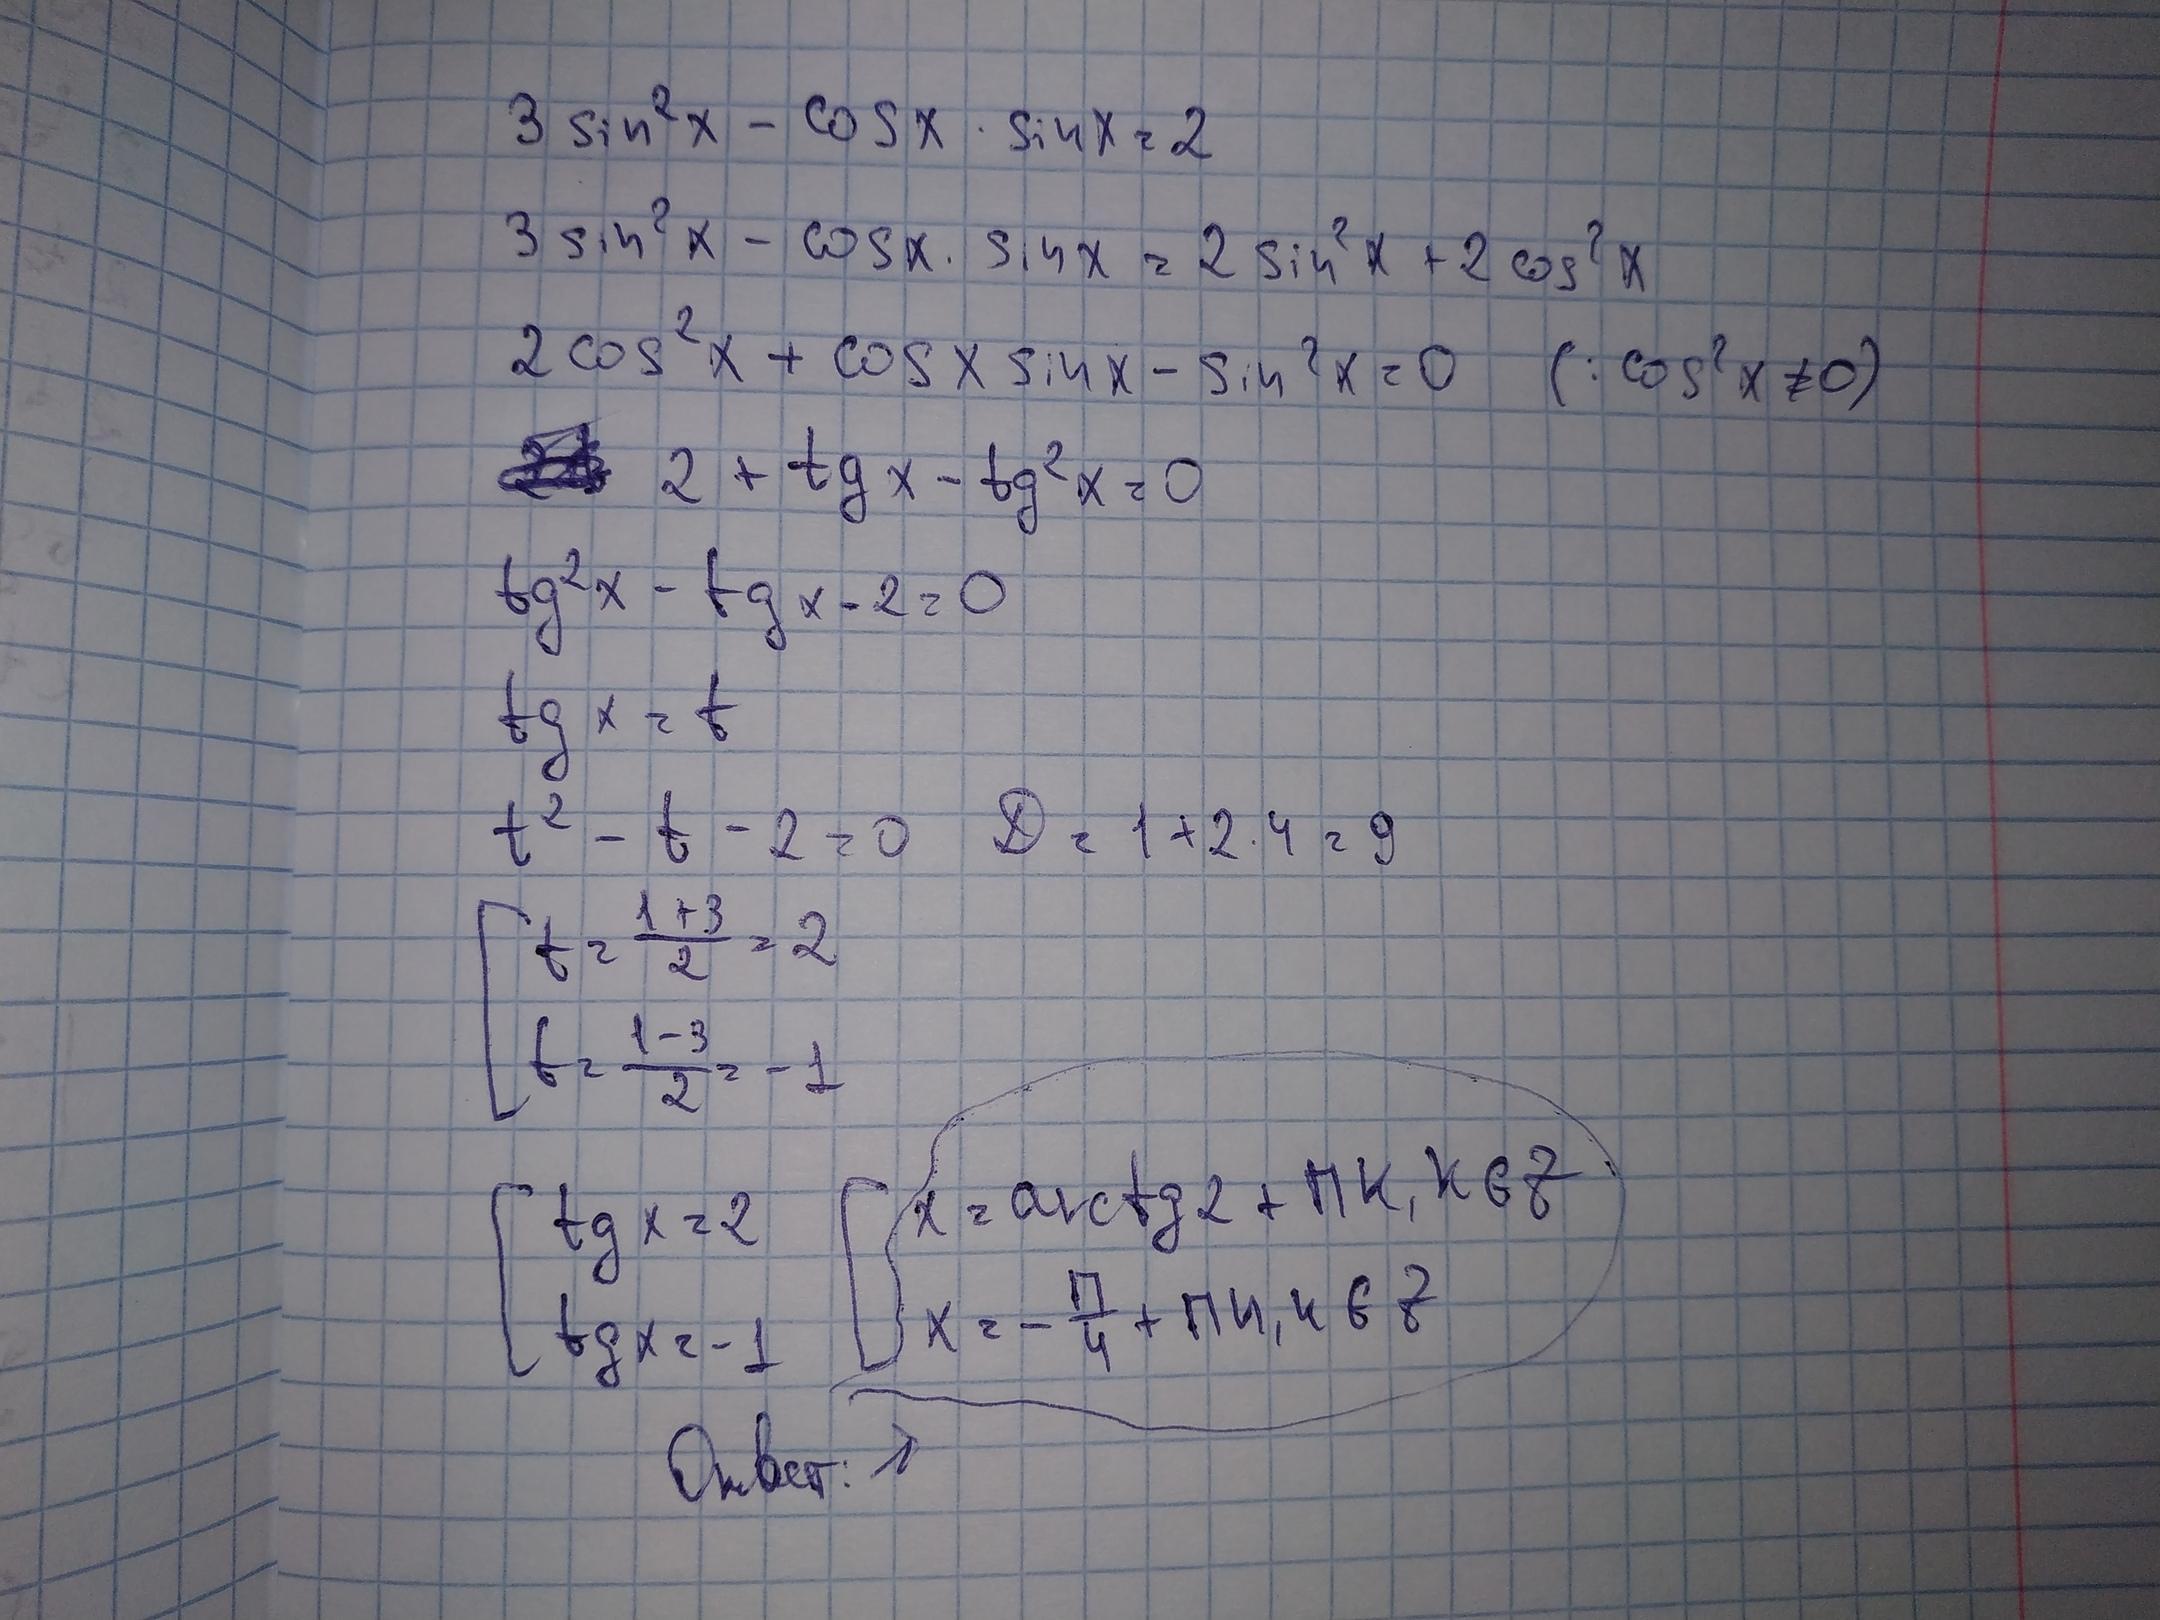 3 sin²x - cosx · sinx = 2
3 sin²x - cosx · sinx = 2 sin²x + 2 cos²x
2 cos²x + cosx sinx - sin²x = 0 (: cos²x ≠ 0)
2 + tg x - tg²x = 0
tg²x - tg x - 2 = 0
tg x = t
t² - t - 2 = 0 D = 1 + 2·4 = 9
[ t = (1+3)/2 = 2
t = (1-3)/2 = -1
[ tg x = 2 [ x = arctg 2 + πk, k ∈ Z
tg x = -1 x = -π/4 + πn, n ∈ Z
Ответ: ↗